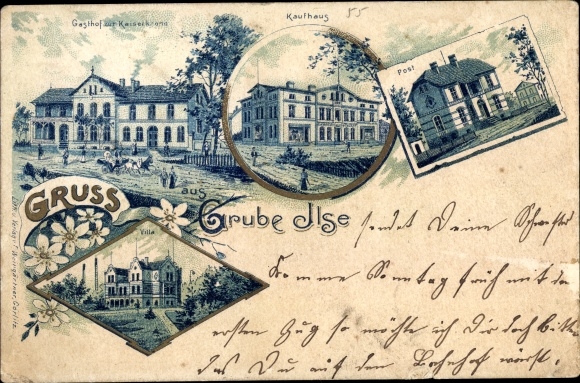 Gasthof zur Kaiserkrone
Kaufhaus
55
Post
GRUSS
aus
Grube Ilse
Villa
sendet Deine Schwester
Komme Sonntag früh mit dem
ersten Zug so möchte ich Dir doch bitten
das Du auf den Bahnhof wärst.